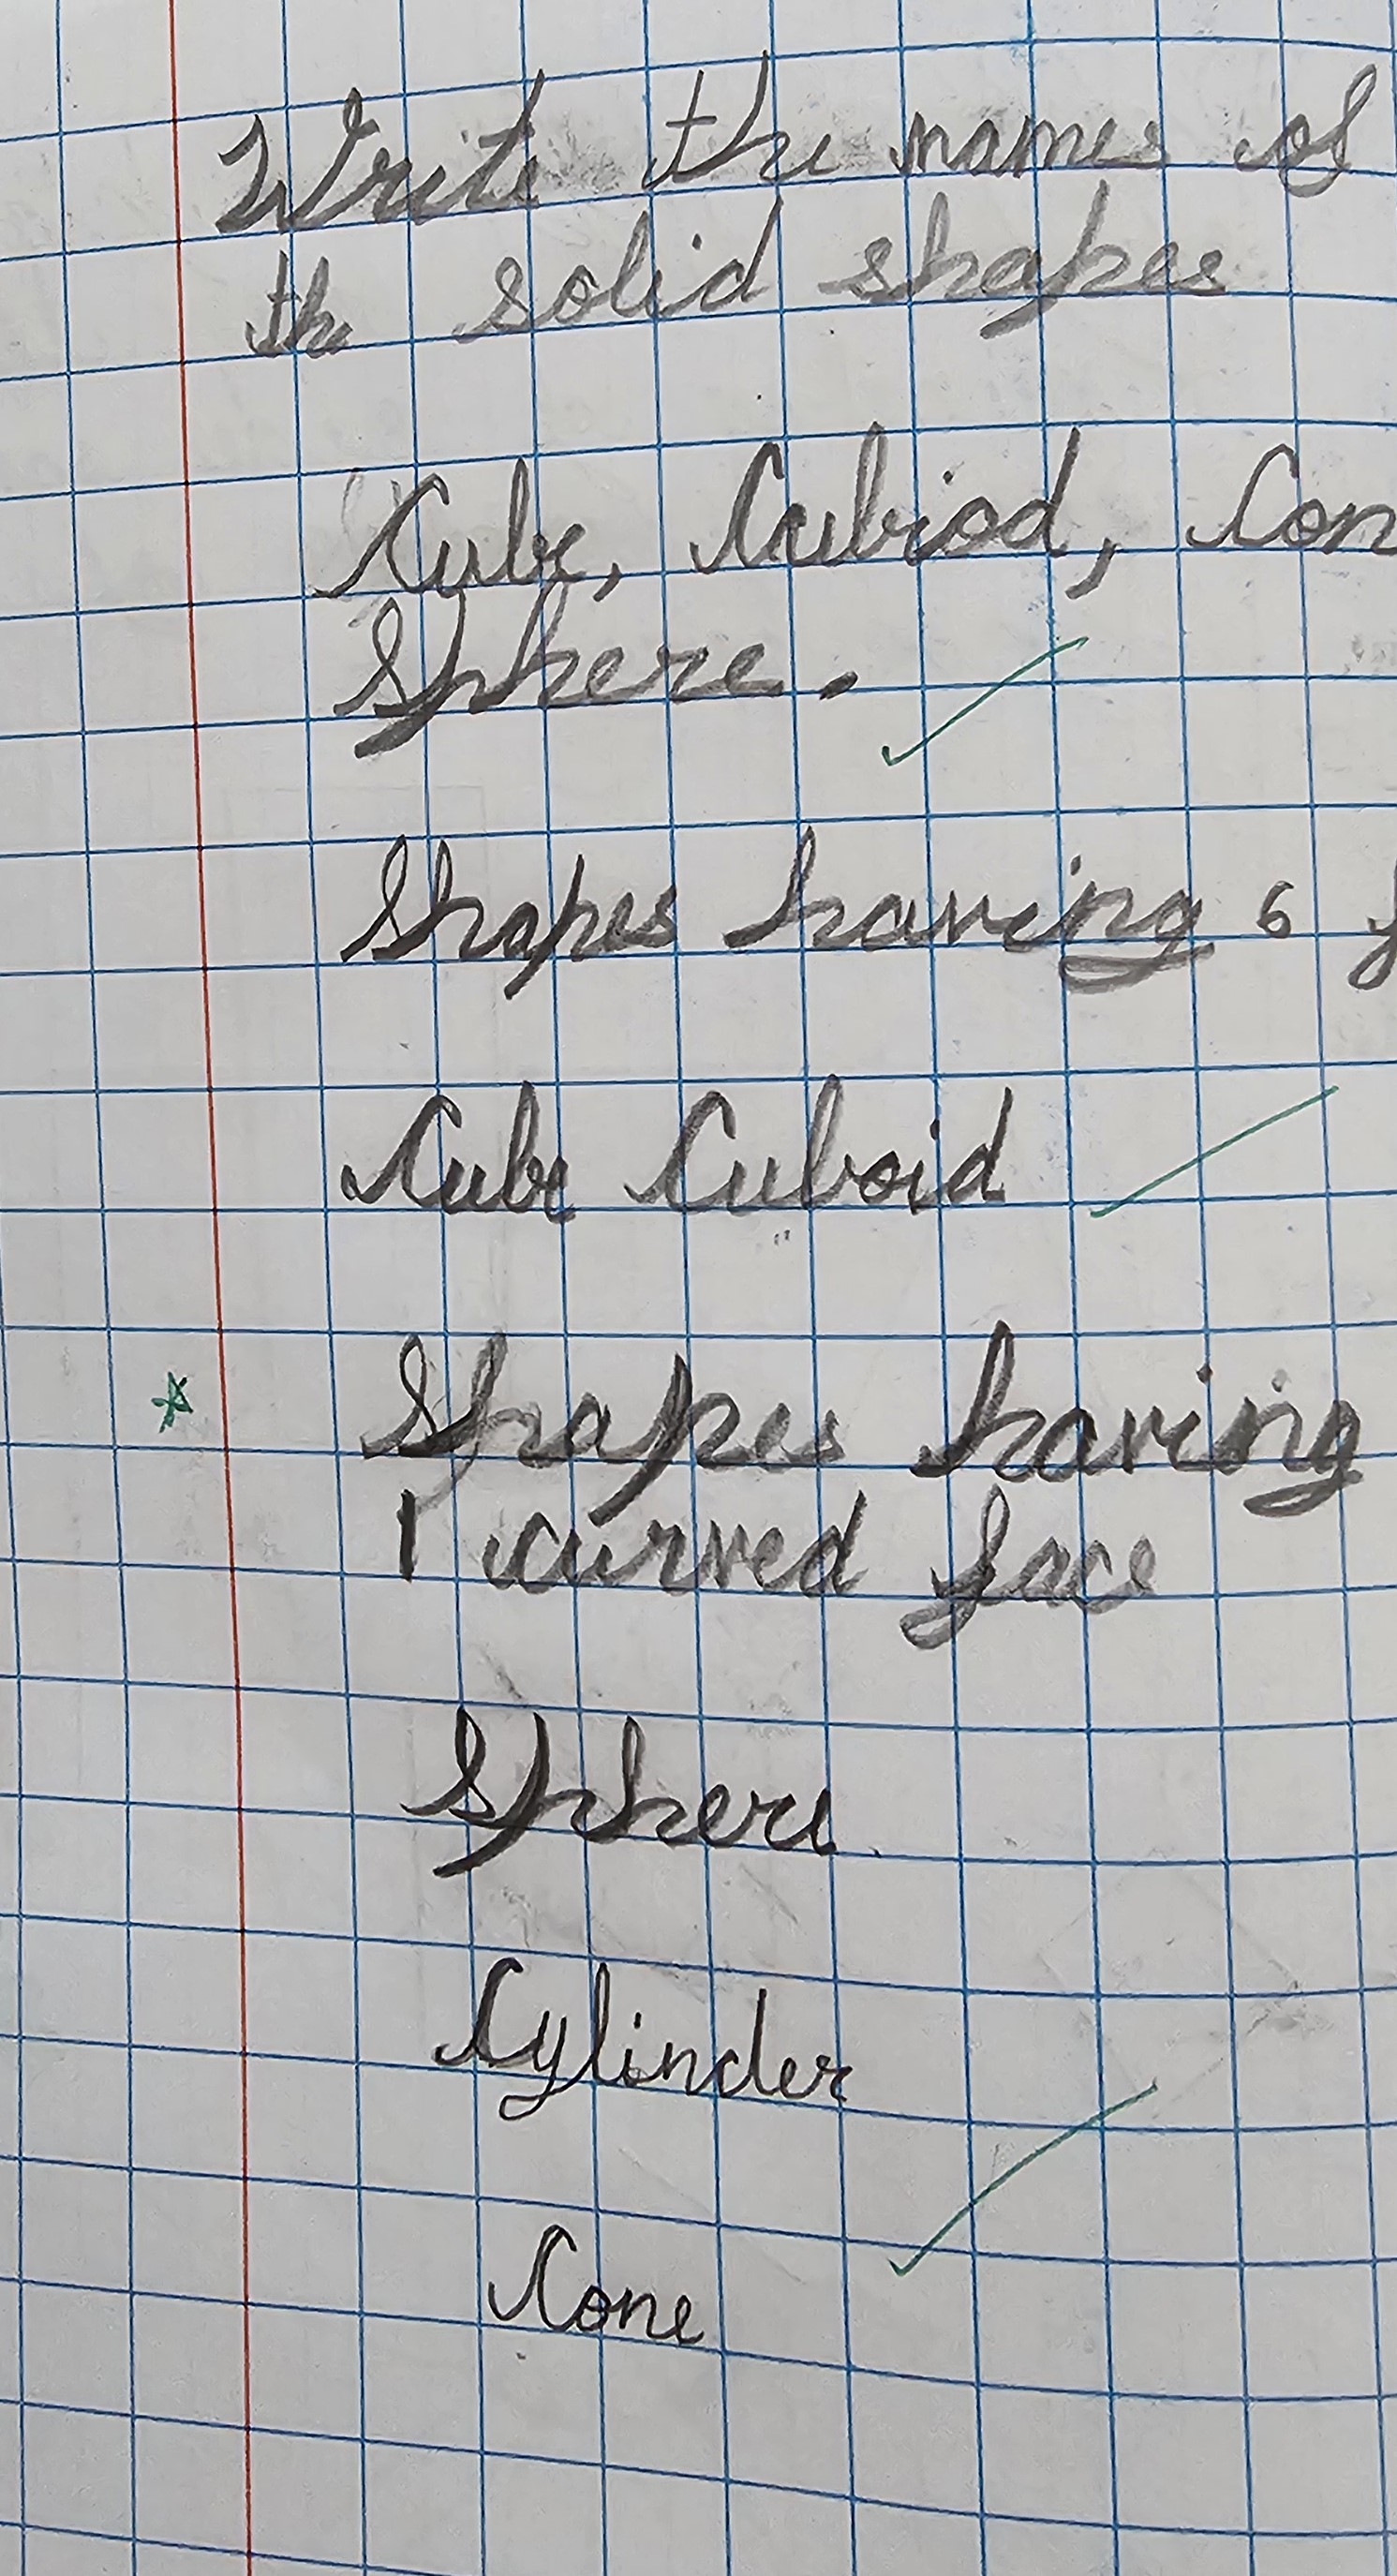 Write the names of
the solid shapes
Cube, Cubiod, Con
Sphere.
Shapes having 6 f
Cube Cuboid
Shapes having
1 curved face
Sphere
Cylinder
Cone